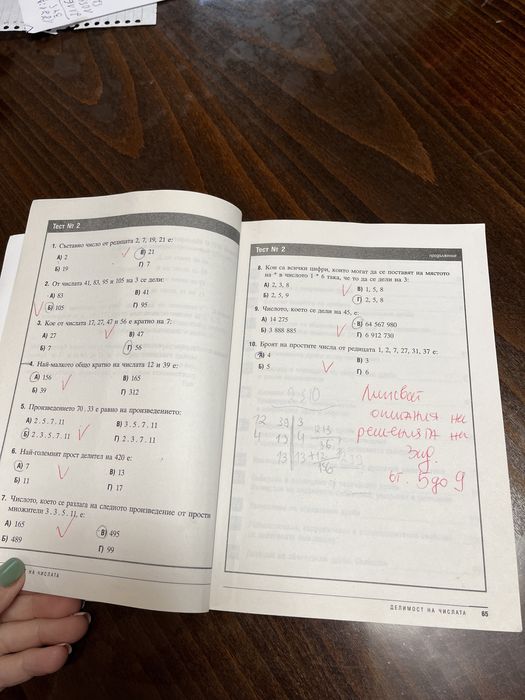 Тест № 2
1. Съставно число от редицата 2, 7, 19, 21 е:
А) 2
В) 21
Б) 19
Г) 7
2. От числата 41, 83, 95 и 105 на 3 се дели:
А) 83
В) 41
Б) 105
Г) 95
3. Кое от числата 17, 27, 47 и 56 е кратно на 7:
А) 27
В) 47
Б) 17
Г) 56
4. Най-малкото общо кратно на числата 12 и 39 е:
А) 156
В) 165
Б) 39
Г) 312
5. Произведението 70 . 33 е равно на произведението:
А) 2 . 5 . 7 . 11
В) 3 . 5 . 7 . 11
Б) 2 . 3 . 5 . 7 . 11
Г) 2 . 3 . 7 . 11
6. Най-големият прост делител на 420 е:
А) 7
В) 13
Б) 11
Г) 17
7. Числото, което се разлага на следното произведение от прости
множители 3 . 3 . 5 . 11, е:
А) 165
В) 495
Б) 489
Г) 99
НА ЧИСЛАТА
Тест № 2
продължение
8. Кои са всички цифри, които могат да се поставят на мястото
на * в числото 1 * 6 така, че то да се дели на 3:
А) 2, 3, 8
В) 1, 5, 8
Б) 2, 5, 9
Г) 2, 5, 8
9. Числото, което се дели на 45, е:
А) 14 275
В) 64 567 980
Б) 3 888 885
Г) 6 912 730
10. Броят на простите числа от редицата 1, 2, 7, 27, 31, 37 е:
А) 4
В) 3
Б) 5
Г) 6
Липсват
описания на
решенията на
зад.
от 5 до 9
12 39 3
4 13 4
13 13
156
ДЕЛИМОСТ НА ЧИСЛАТА 65